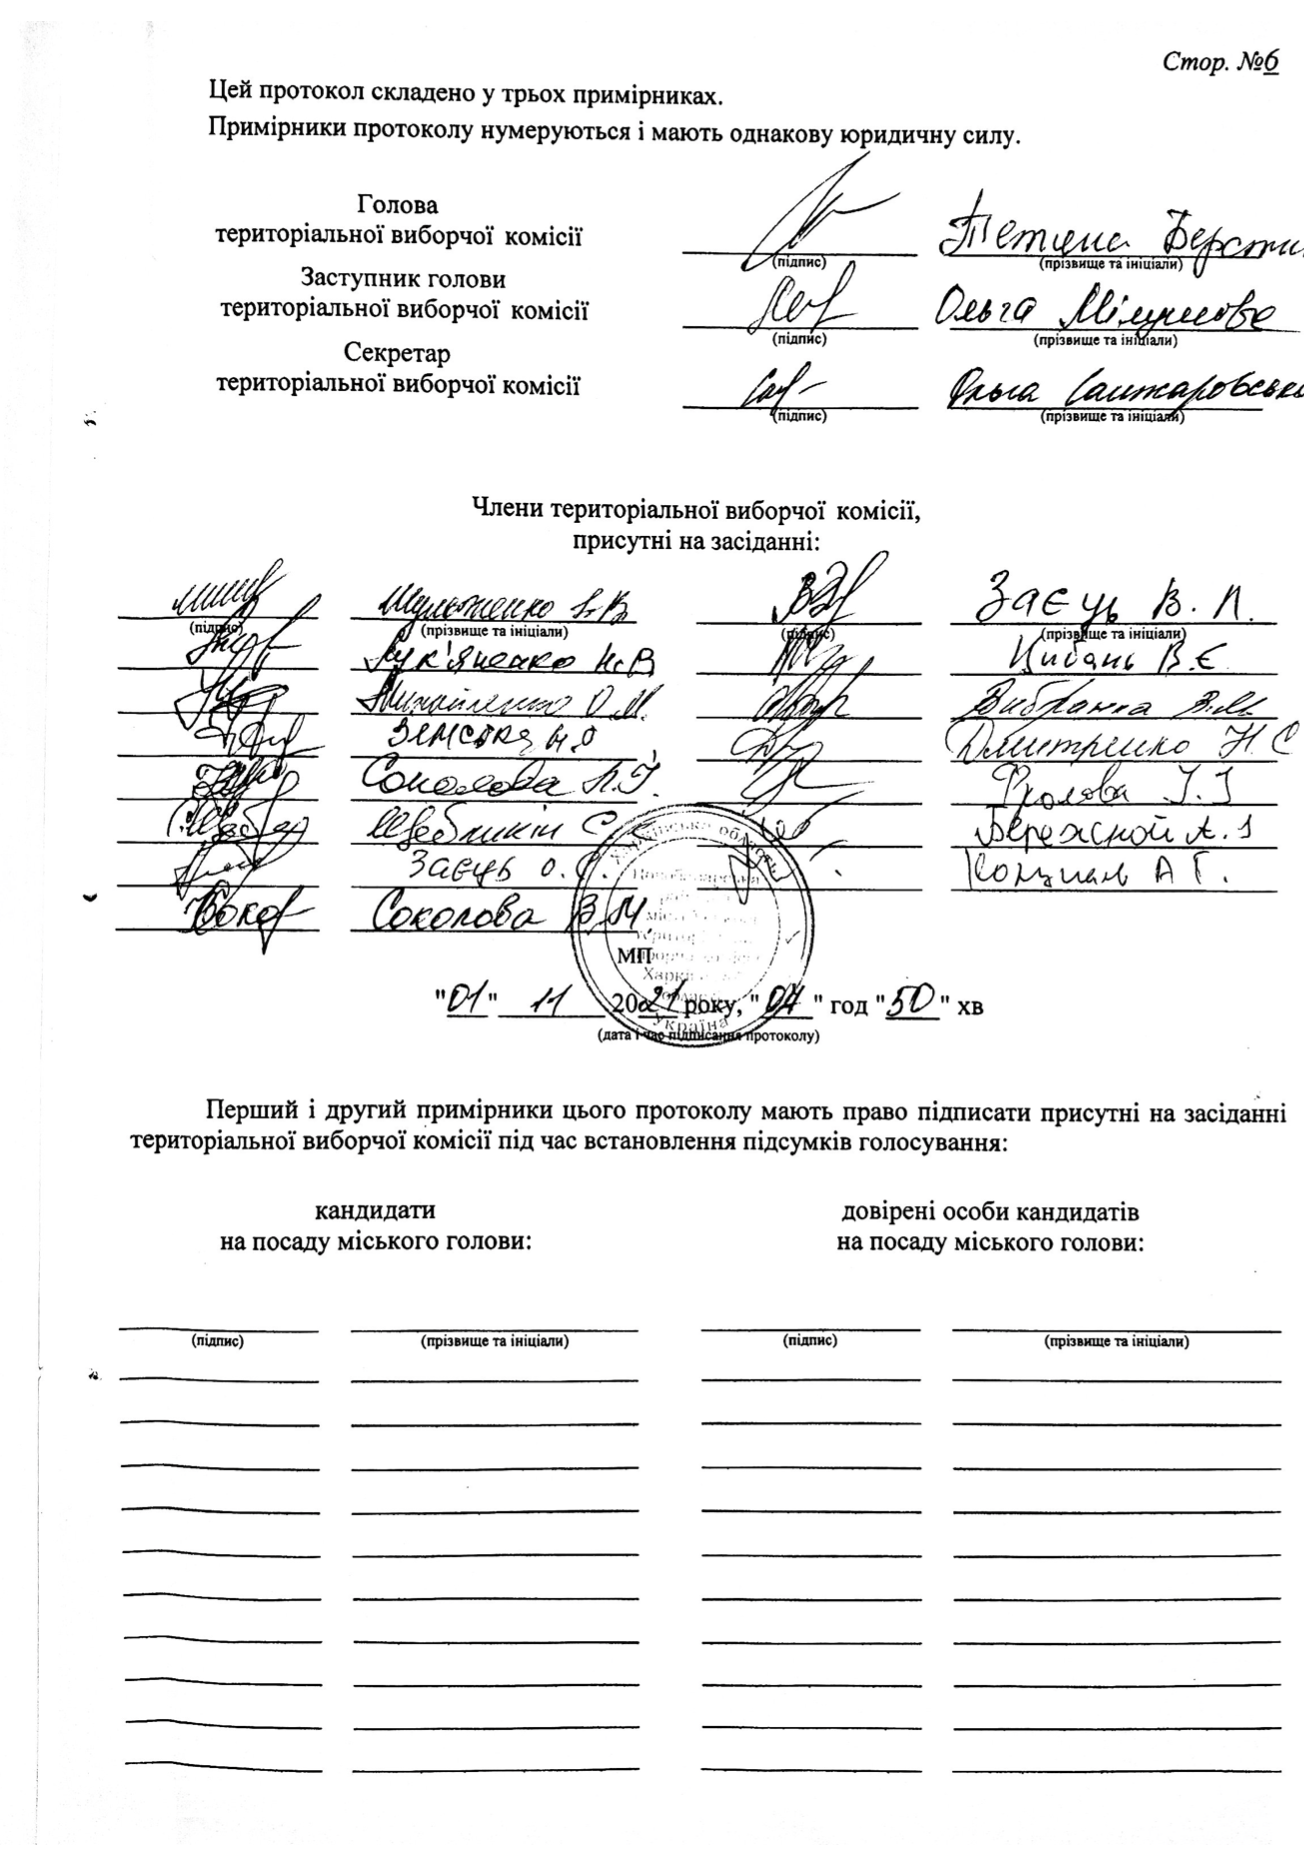 Стор. №6
Цей протокол складено у трьох примірниках.
Примірники протоколу нумеруються і мають однакову юридичну силу.
Голова
територіальної виборчої комісії
Тетяна
(підпис) (прізвище та ініціали)
Заступник голови
територіальної виборчої комісії
Ольга
(підпис) (прізвище та ініціали)
Секретар
територіальної виборчої комісії
Ольга
(підпис) (прізвище та ініціали)
Члени територіальної виборчої комісії,
присутні на засіданні:
Заєць В. П.
(підпис) (прізвище та ініціали) (підпис) (прізвище та ініціали)
Лук'яненко Н.В Цибань В.Є.
Михайленко О.М. Вибранка В.М.
Земська Н.О Дмитренко Н С
Соколова Л.Г. Фролова І.І
Щебликін С. Бережной А.І
Заєць О.С. А Г.
Соколова В.М.
МП
"01" 11 2021 року, "07" год "50" хв
(дата і час підписання протоколу)
Україна
Перший і другий примірники цього протоколу мають право підписати присутні на засіданні
територіальної виборчої комісії під час встановлення підсумків голосування:
кандидати
на посаду міського голови:
довірені особи кандидатів
на посаду міського голови:
(підпис) (прізвище та ініціали) (підпис) (прізвище та ініціали)